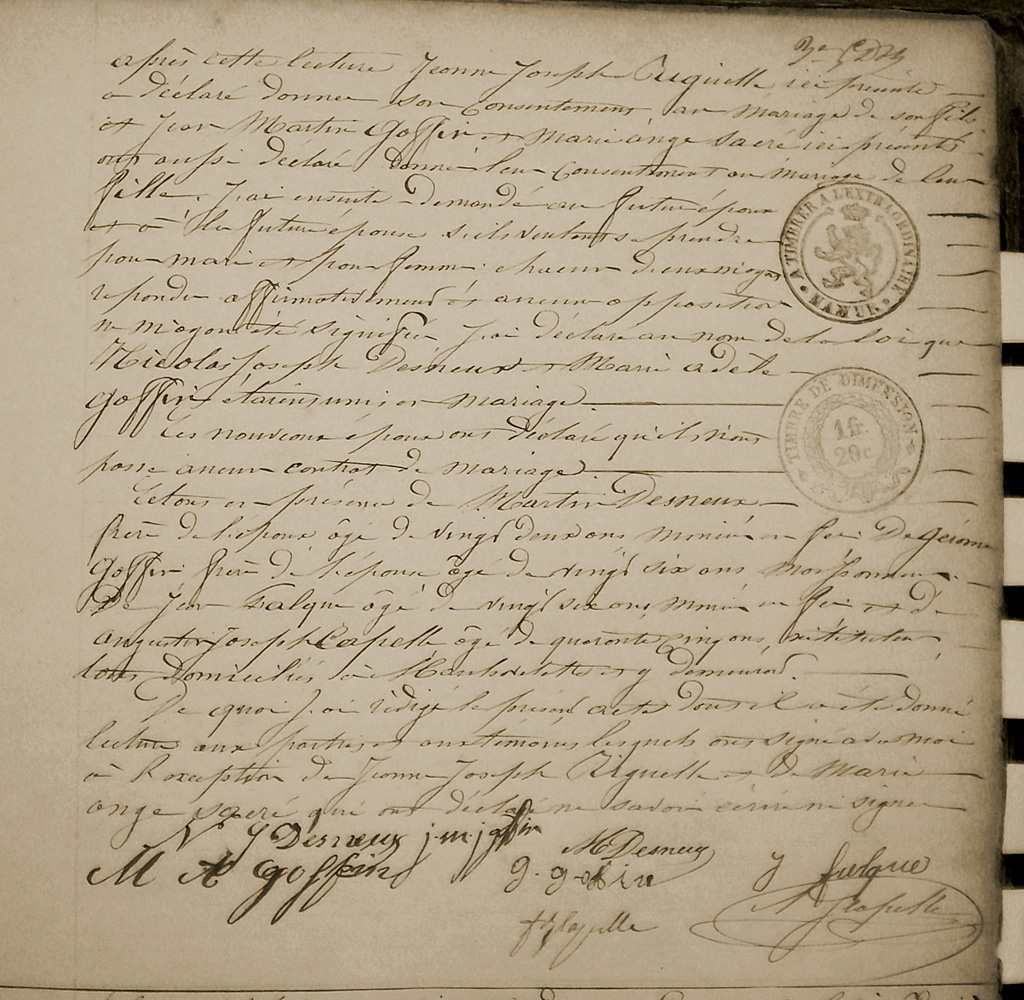 après cette lecture Jeanne Joseph Riguelle ici présente
a déclaré donner son consentement au mariage de son fils
et Jean Martin Goffin et Marie ange Sacré ici présents
ont aussi déclaré donné leur consentement au mariage de leur
fille. J'ai ensuite demandé au futur époux
et à la future épouse s'ils veulent se prendre
pour mari et pour femme; chacun d'eux m'ayant
répondu affirmativement et aucune opposition
ne m'ayant été signifiée J'ai déclaré au nom de la loi que
Nicolas Joseph Desneux et Marie adèle
Goffin étaient unis en mariage.
Les nouveaux époux ont déclaré qu'ils n'ont
passé aucun contrat de mariage.
Le tout en présence de Martin Desneux
frère de l'époux âgé de vingt deux ans, en fer, De Jérôme
Goffin frère de l'épouse âgé de vingt six ans
De Jean Falque âgé de vingt six ans en fer et de
augustin Joseph Capelle âgé de quarante cinq ans, instituteur,
tous domiciliés à et y demeurant.
De quoi j'ai rédigé le présent acte dont il a été donné
lecture aux parties et aux témoins lesquels ont signé avec moi
à l'exception de Jeanne Joseph Riguelle et de Marie
ange sacré qui ont déclaré ne savoir écrire ni signer
N J Desneux j.m.j goffin
M Desneux
M A goffin
g. goffin
J falque
A J Capelle
A TIMBRER A L'EXTRAORDINAIRE
NAMUR
TIMBRE DE DIMENSION
1 fr.
20 c.